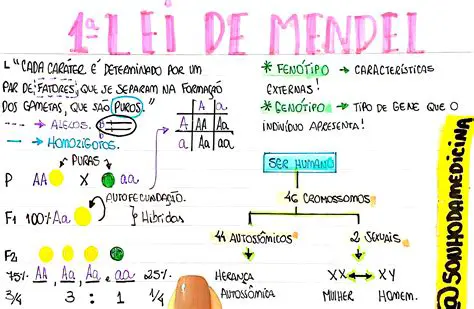 1ª LEI DE MENDEL
L "CADA CARÁTER É DETERMINADO POR UM
PAR DE FATORES, QUE SE SEPARAM NA FORMAÇÃO
DOS GAMETAS, QUE SÃO PUROS."
A a
A AA Aa
a Aa aa
---→ ALELOS.
→ HOMOZIGOTOS.
PURAS
P AA X aa
AUTOFECUNDAÇÃO.
F1 100% Aa } Híbridas
F2
75% AA, Aa, Aa e aa 25%
3/4 3 : 1 1/4
* FENÓTIPO → CARACTERÍSTICAS
EXTERNAS!
* GENÓTIPO → TIPO DE GENE QUE O
INDIVÍDUO APRESENTA!
SER HUMANO
46 CROMOSSOMOS
44 AUTOSSÔMICOS 2 SEXUAIS
HERANÇA XX ↔ XY
AUTOSSÔMICA MULHER HOMEM.
@SONHODAMEDICINA